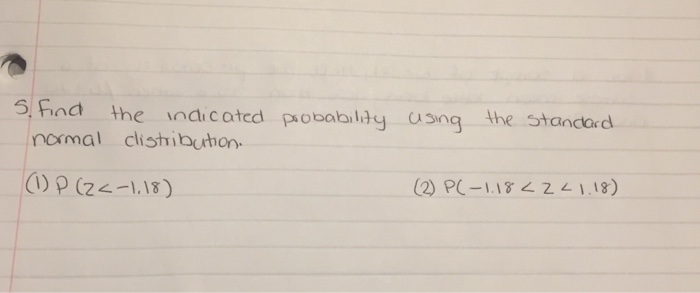 5. Find the indicated probability using the standard
normal distribution.
(1) P (Z < -1.18) (2) P(-1.18 < Z < 1.18)